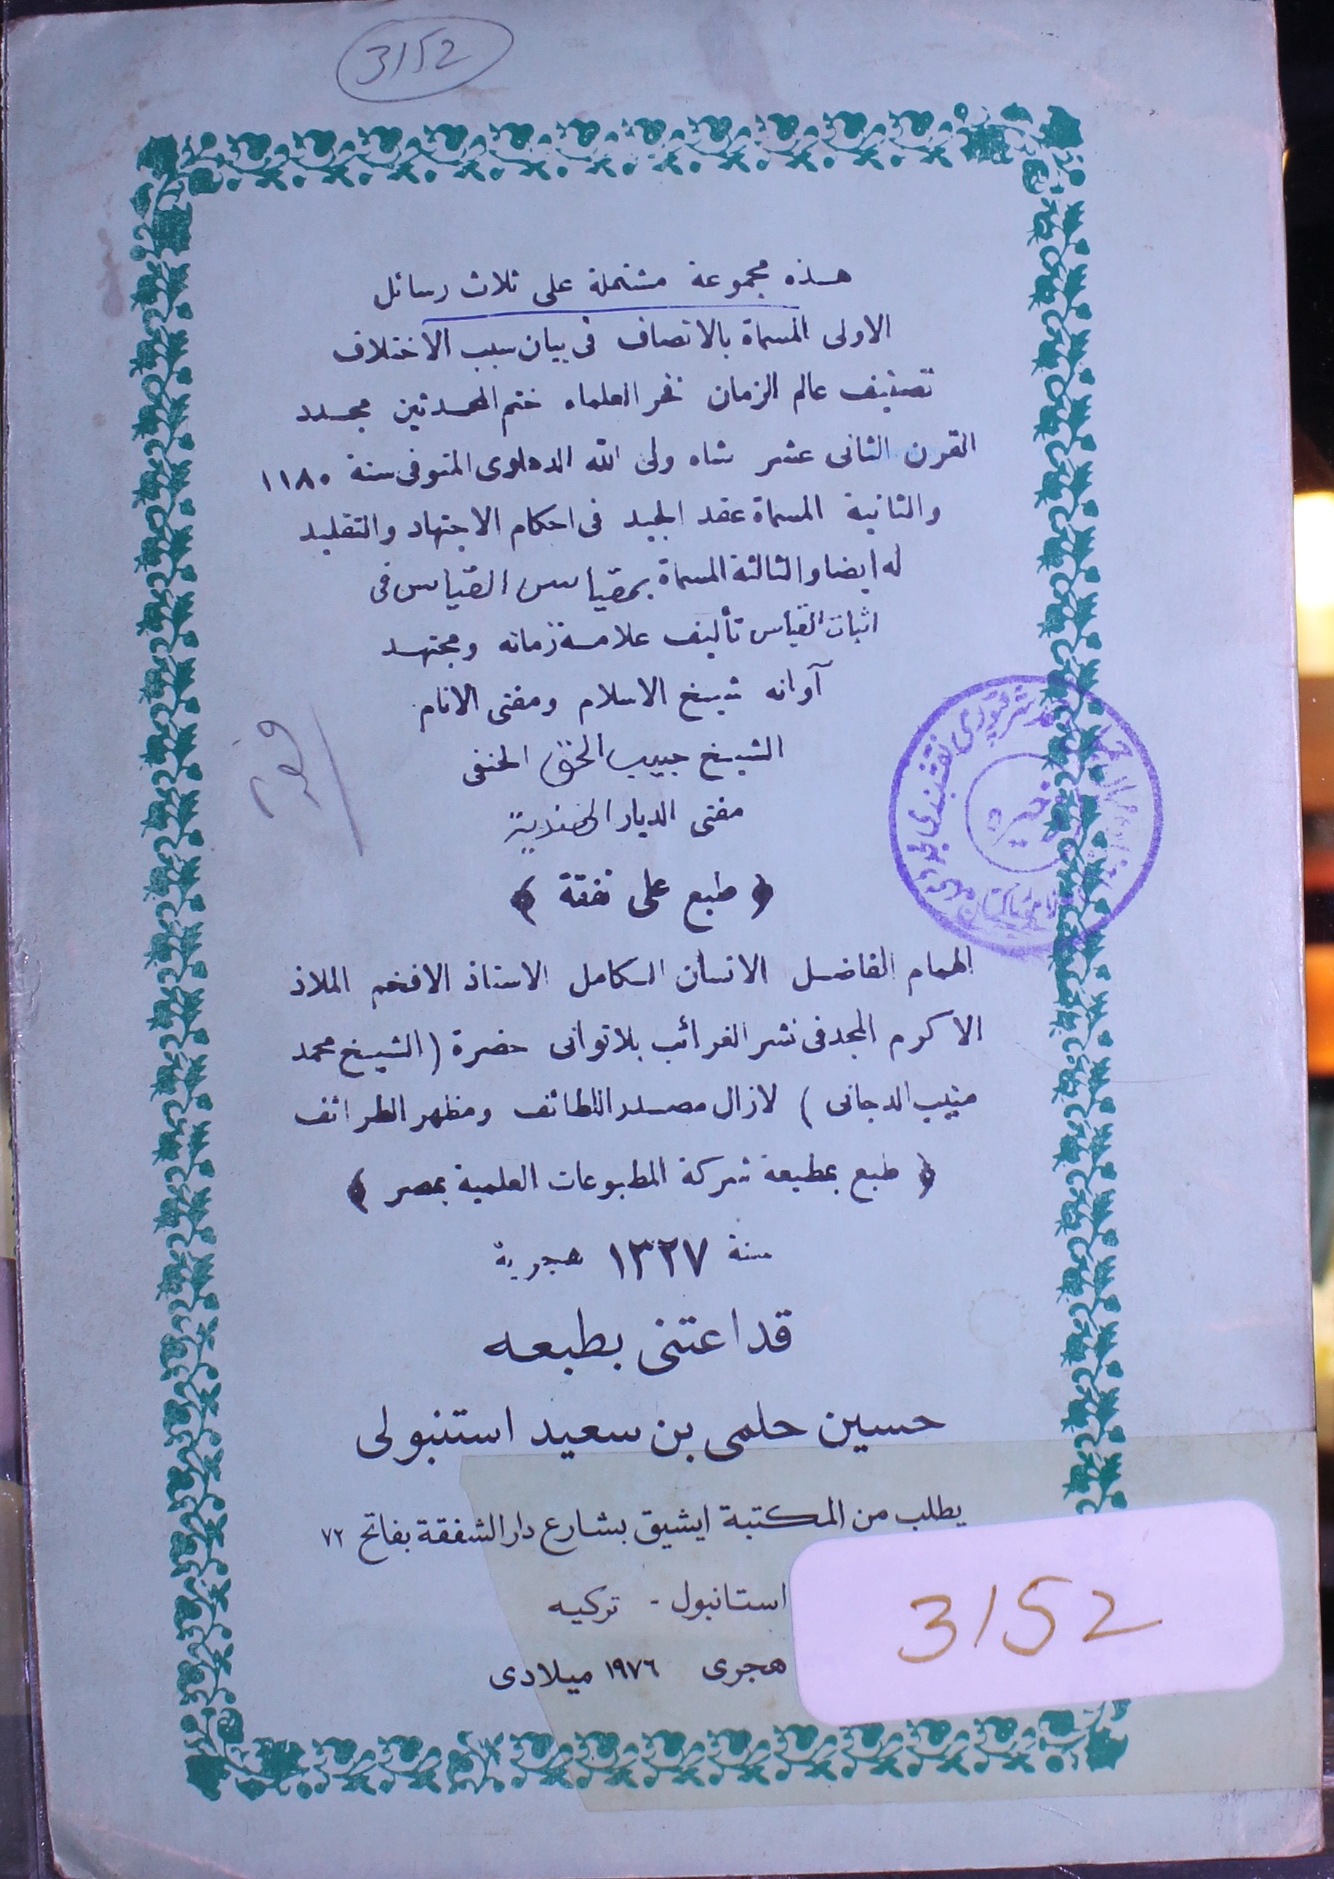 3152
هذه مجموعة مشتملة على ثلاث رسائل
الاولى المسماة بالانصاف فى بيان سبب الاختلاف
تصنيف عالم الزمان فخر العلماء ختم المحدثين مجدد
القرن الثانى عشر شاه ولى الله الدهلوى المتوفى سنة ١١٨٠
والثانية المسماة عقد الجيد فى احكام الاجتهاد والتقليد
له ايضا والثالثة المسماة بمقياس القياس فى
اثبات القياس تأليف علامة زمانه ومجتهد
آوانه شيخ الاسلام ومفتى الانام
الشيخ حبيب الحق الحنفى
مفتى الديار الهندية
﴿ طبع على نفقة ﴾
الهمام الفاضل الانسان الكامل الاستاذ الافخم الملاذ
الاكرم المجد فى نشر الغرائب بلا توانى حضرة (الشيخ محمد
منيب الدجانى) لازال مصدر اللطائف ومظهر الطرائف
﴿ طبع بمطبعة شركة المطبوعات العلمية بمصر ﴾
سنة ١٣٢٧ هجرية
قد اعتنى بطبعه
حسين حلمى بن سعيد استنبولى
يطلب من المكتبة ايشيق بشارع دار الشفقة بفاتح ٧٢
استانبول - تركيه
هجرى ١٩٧٦ ميلادى
3152
ذخيره
شرقپورى نقشبندى مجددى